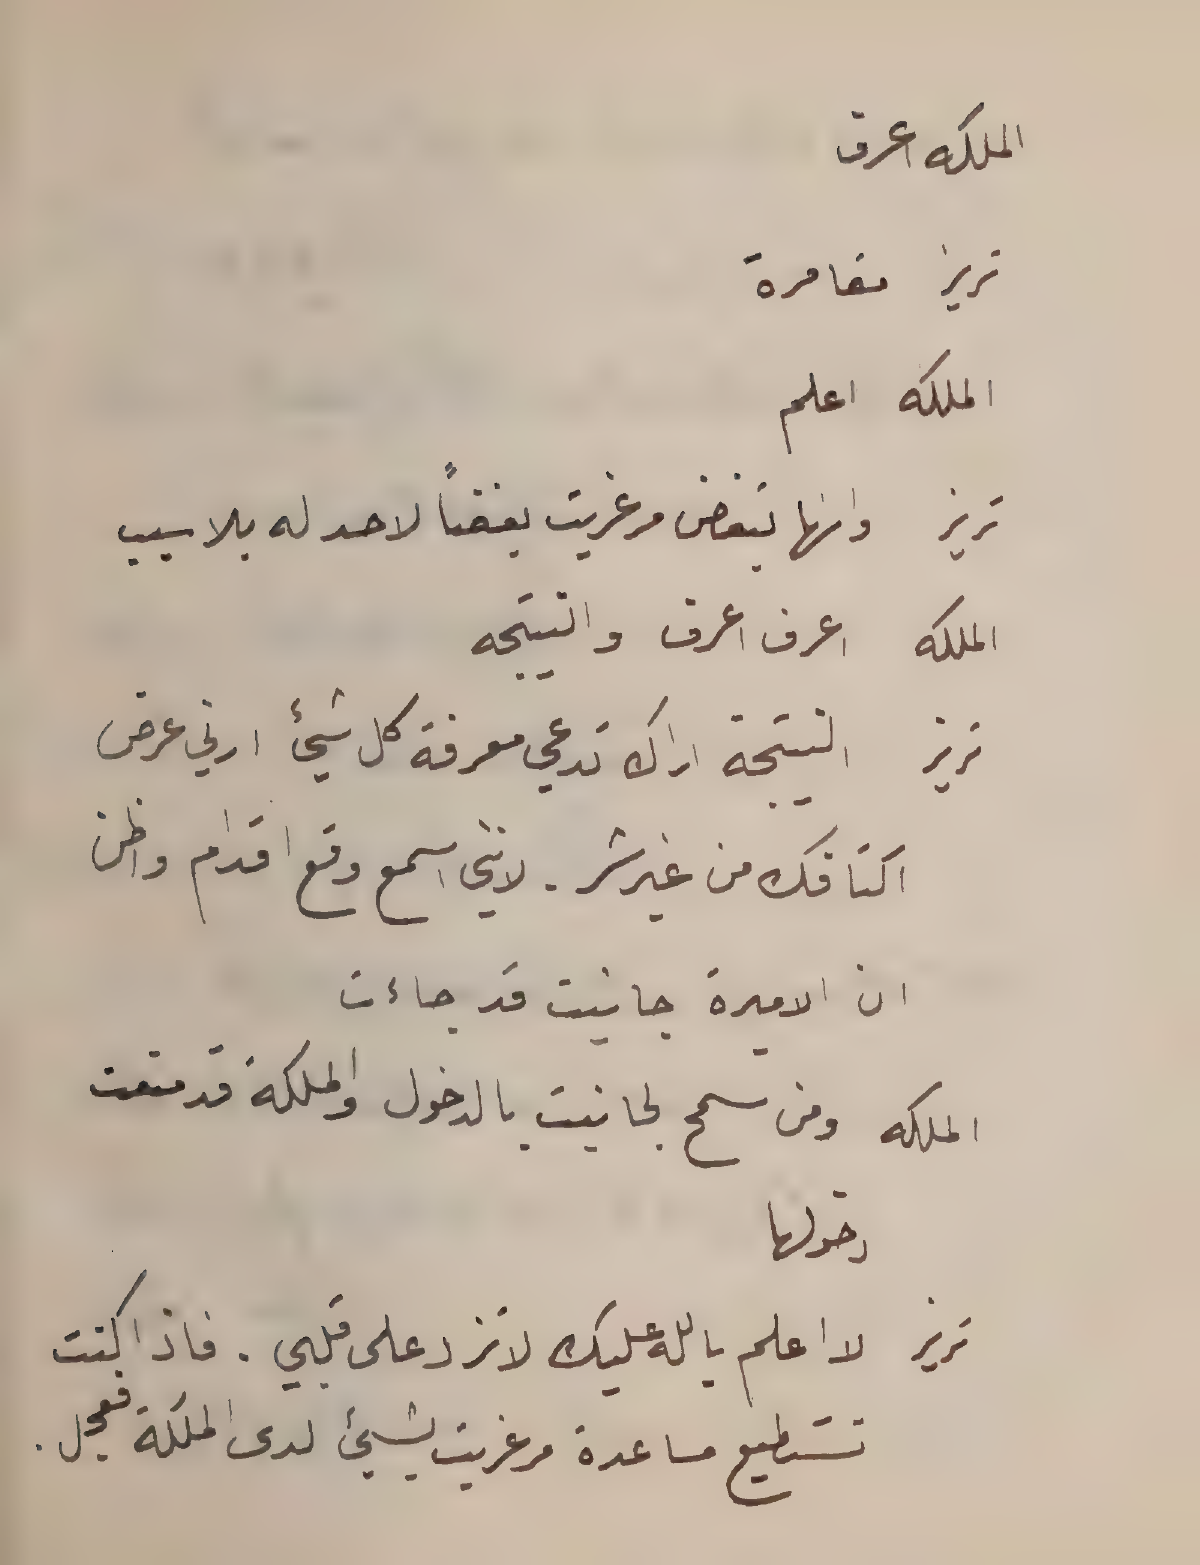 الملكه اعرف
تريز مغامرة
الملكه اعلم
تريز وانها تبغض مرغريت بغضاً لاحد له بلا سبب
الملكه اعرف اعرف والنتيجه
تريز النتيجة اراك تدعي معرفة كل شيئ ارني عرض
اكتافك من غير شر . لانني اسمع وقع اقدام واظن
ان الاميرة جانيت قد جاءت
الملكه ومن سمح لجانيت بالدخول والملكة قد منعت
دخولها
تريز لا اعلم بالله عليك لا تزد على قلبي . فاذا كنت
تستطيع مساعدة مرغريت بشيئ لدى الملكة فعجل .